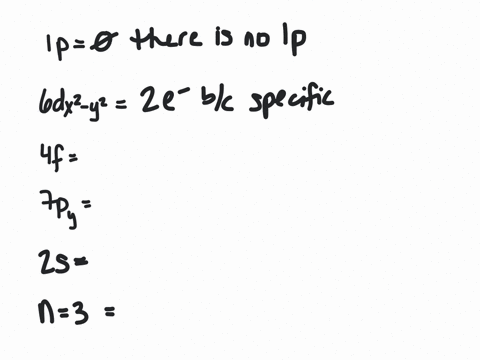 1p = ∅ there is no 1p
6dx²-y² = 2e⁻ b/c specific
4f =
7py =
2s =
n = 3 =